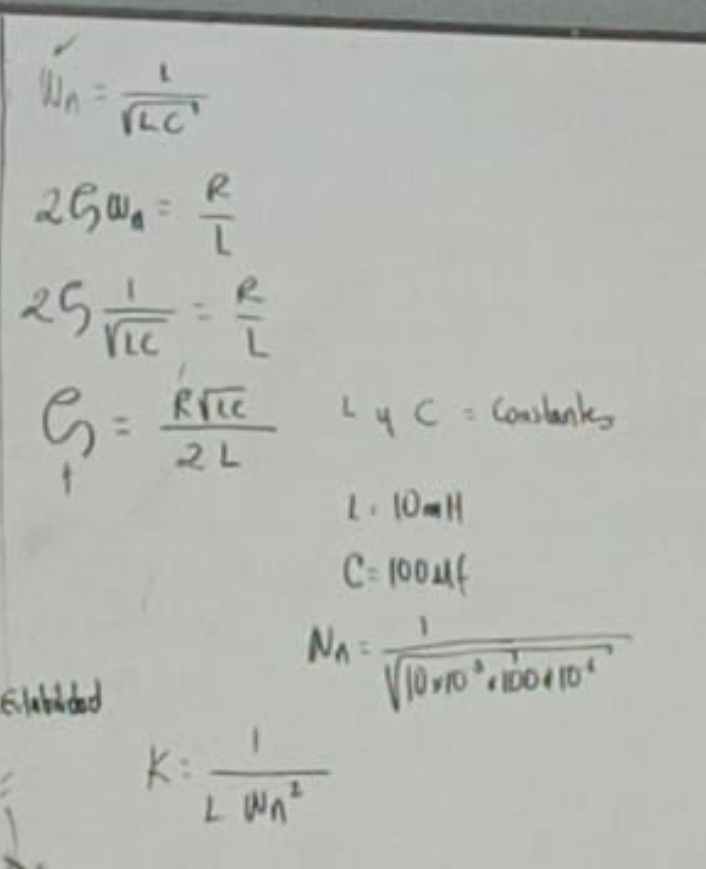 Wn = 1/√LC
2ζωn = R/L
2ζ 1/√LC = R/L
ζ = R√LC / 2L    L y C = Constantes
L = 10mH
C = 100μf
Wn = 1/√10×10³×100×10⁶
Estabilidad
K = 1/L Wn²